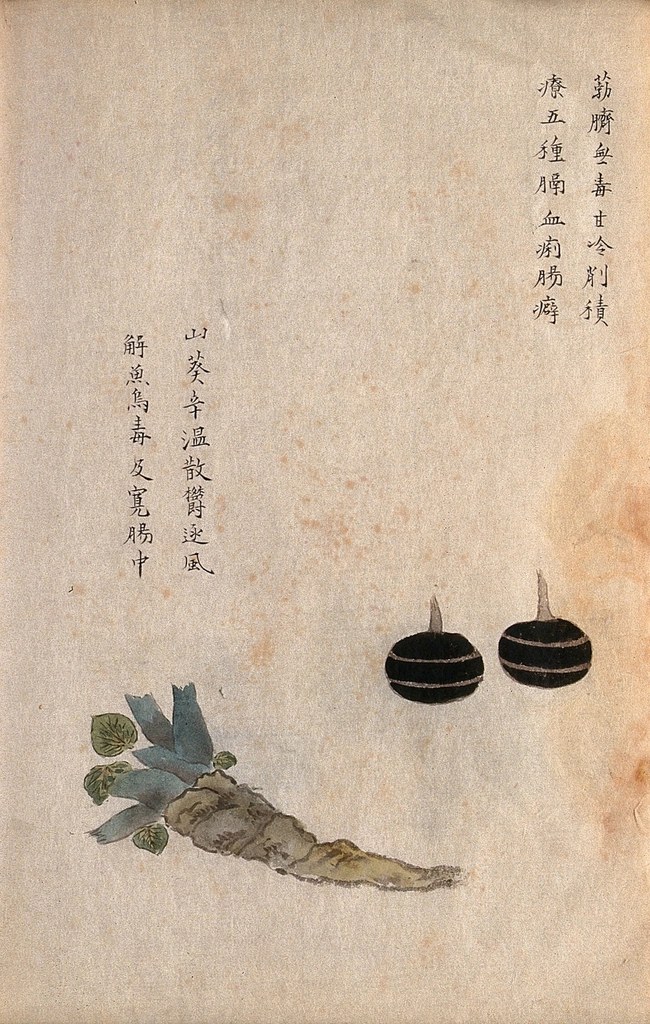 葧臍無毒甘冷削積
療五種膈血痢腸癖
山葵辛温散欝逐風
解魚鳥毒及寛腸中